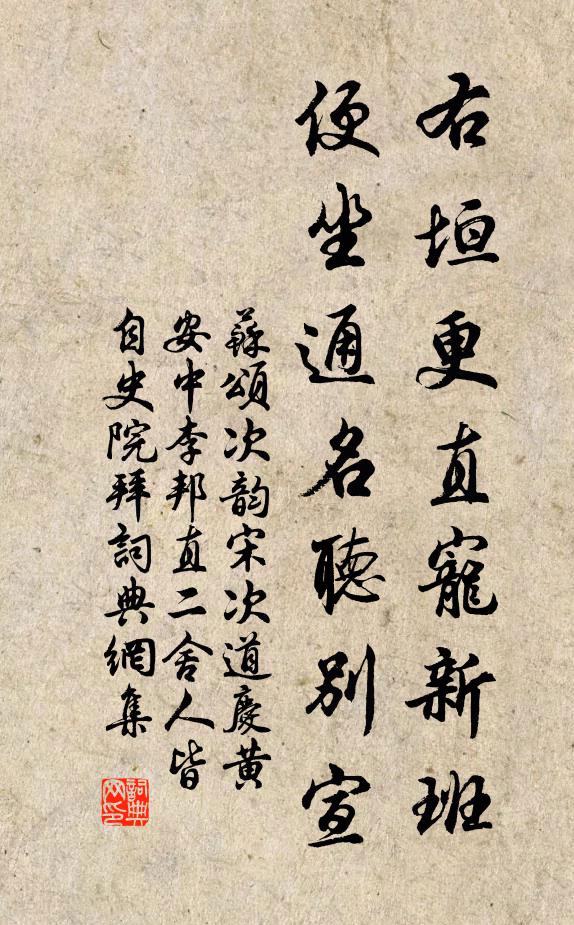 右垣更直寵新班
便坐通名聽別宣
蘇頌次韵宋次道慶黃
安中李邦直二舍人皆
自史院拜詞典網集
詞典
网印